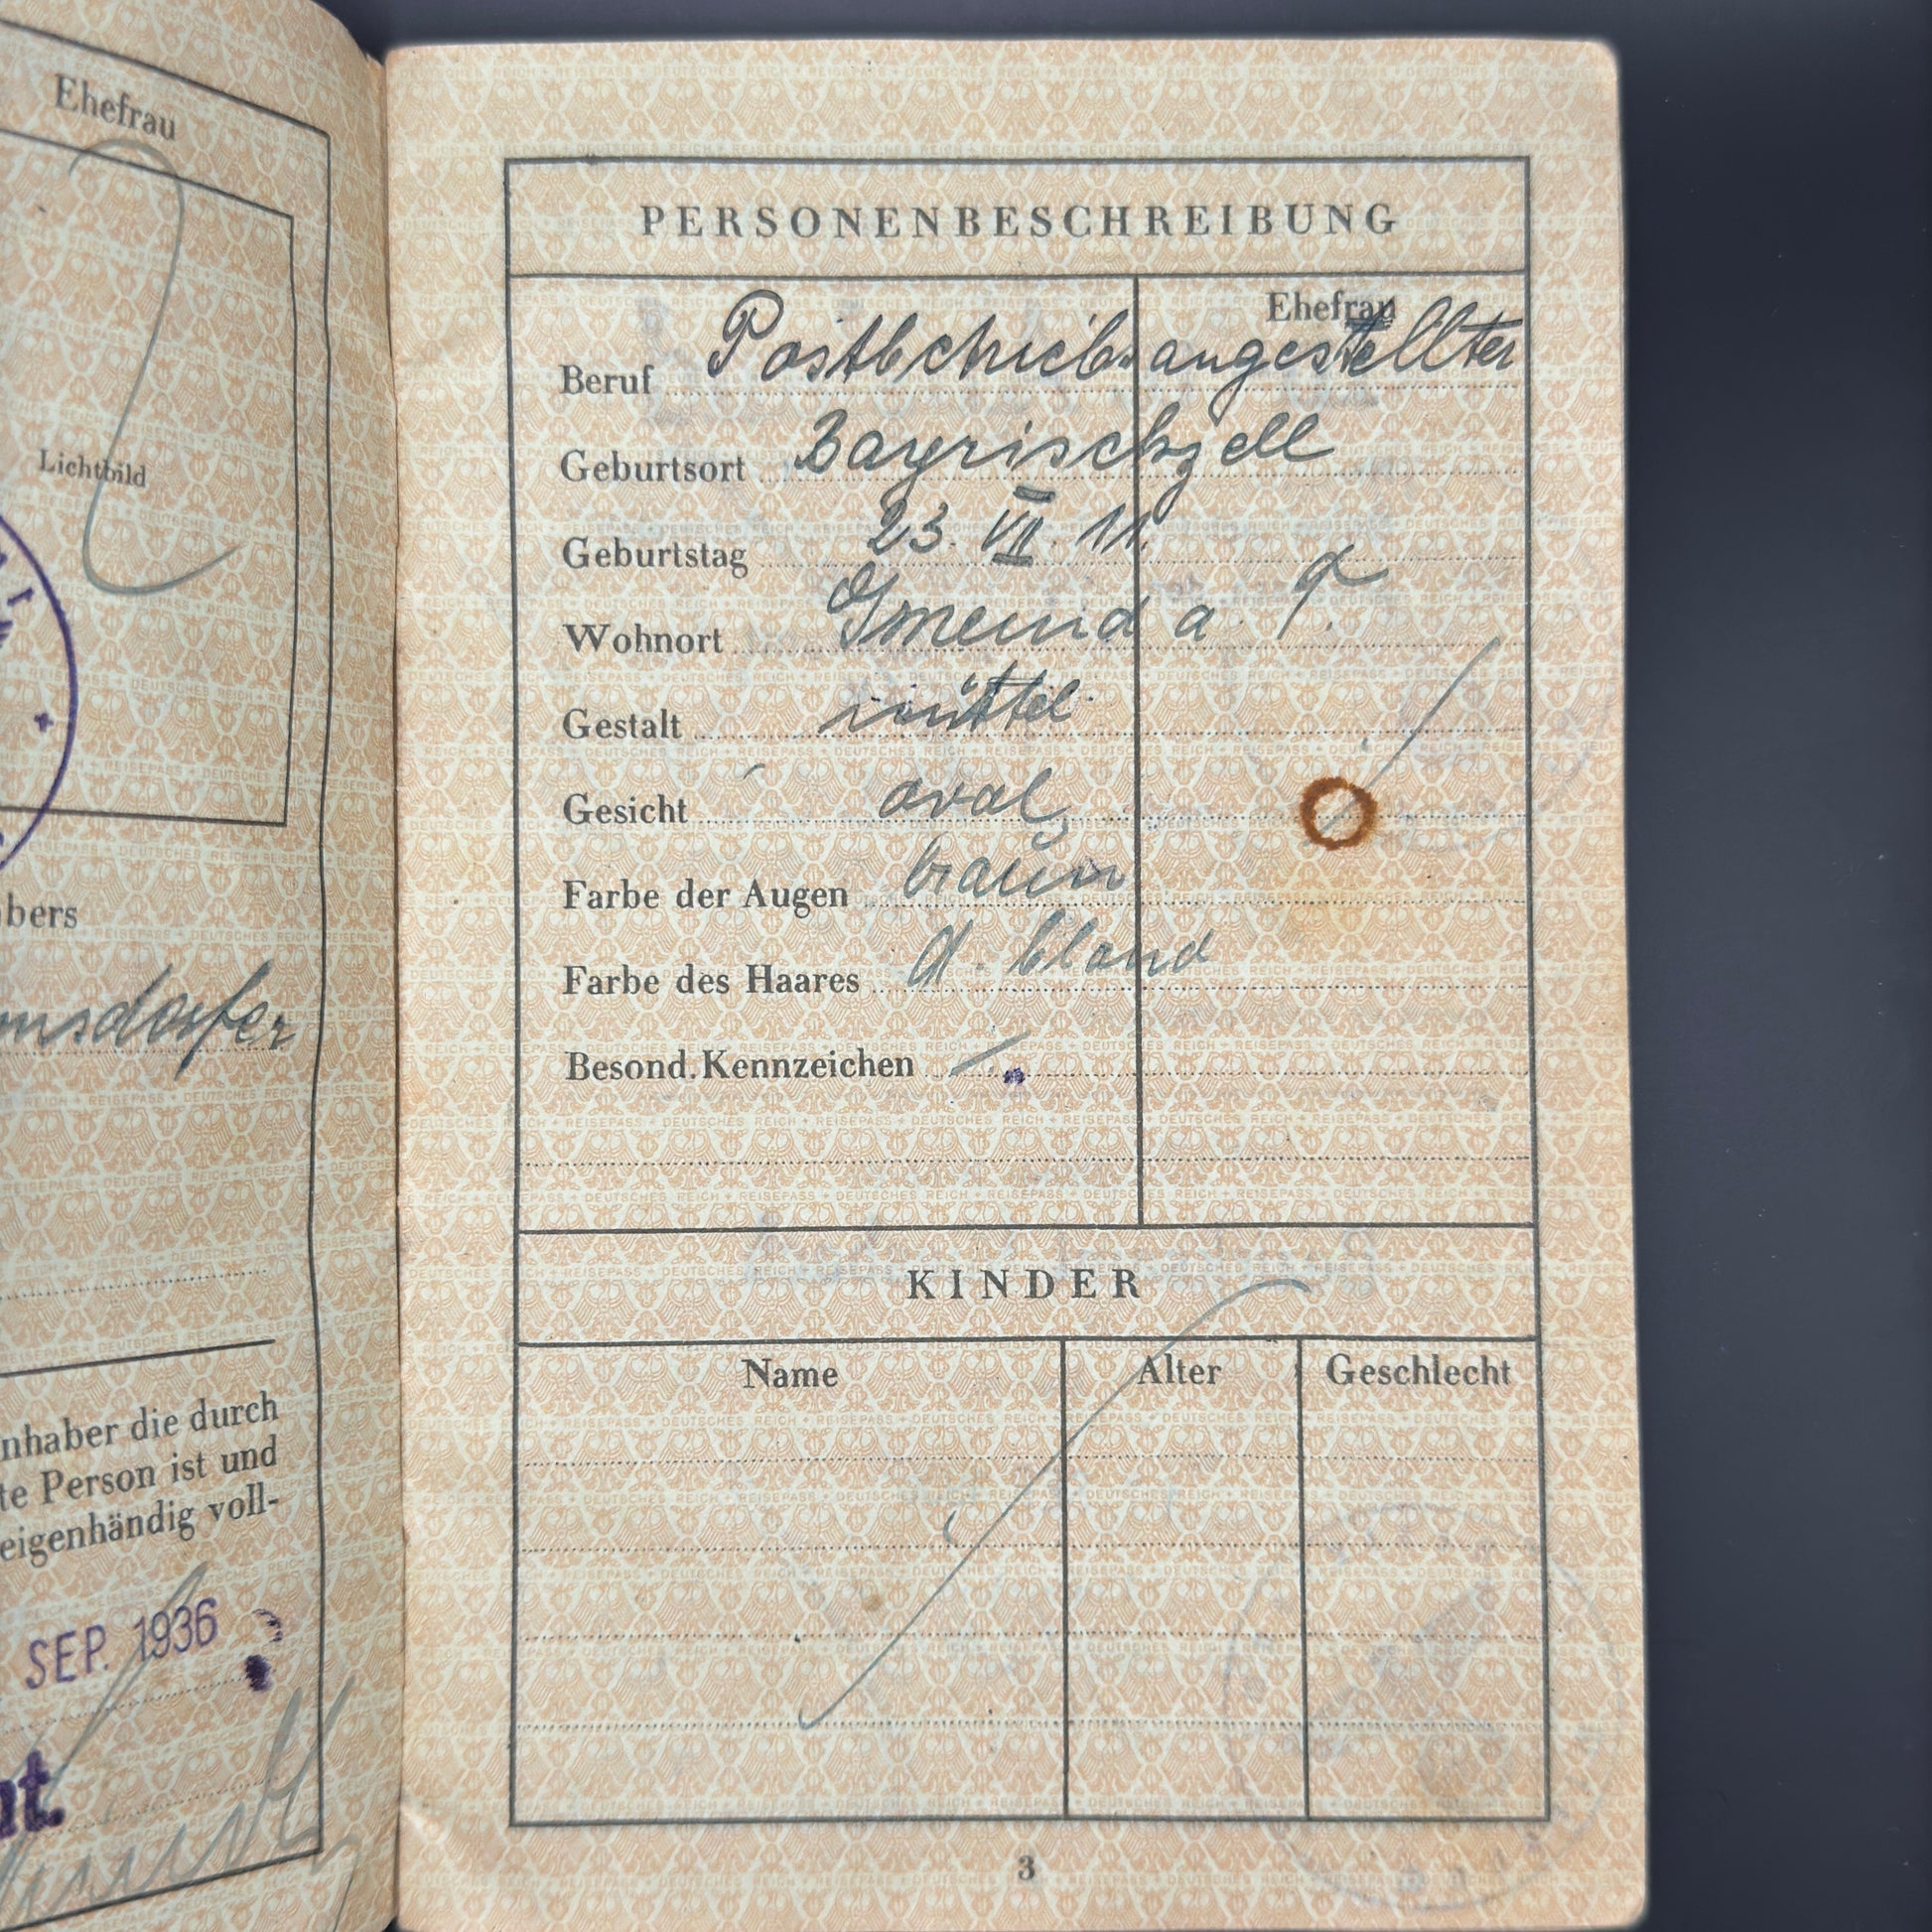 Ehefrau
Lichtbild
bers
nsdorfer
nhaber die durch
te Person ist und
eigenhändig voll-
SEP. 1936
t.
PERSONENBESCHREIBUNG
Ehefrau
Beruf Postbetriebsangestellter
Geburtsort Bayrischzell
Geburtstag 23. VII. 11.
Wohnort Gmeind a.
Gestalt mittel
Gesicht oval
Farbe der Augen braun
Farbe des Haares d. blond
Besond. Kennzeichen
KINDER
Name Alter Geschlecht
3